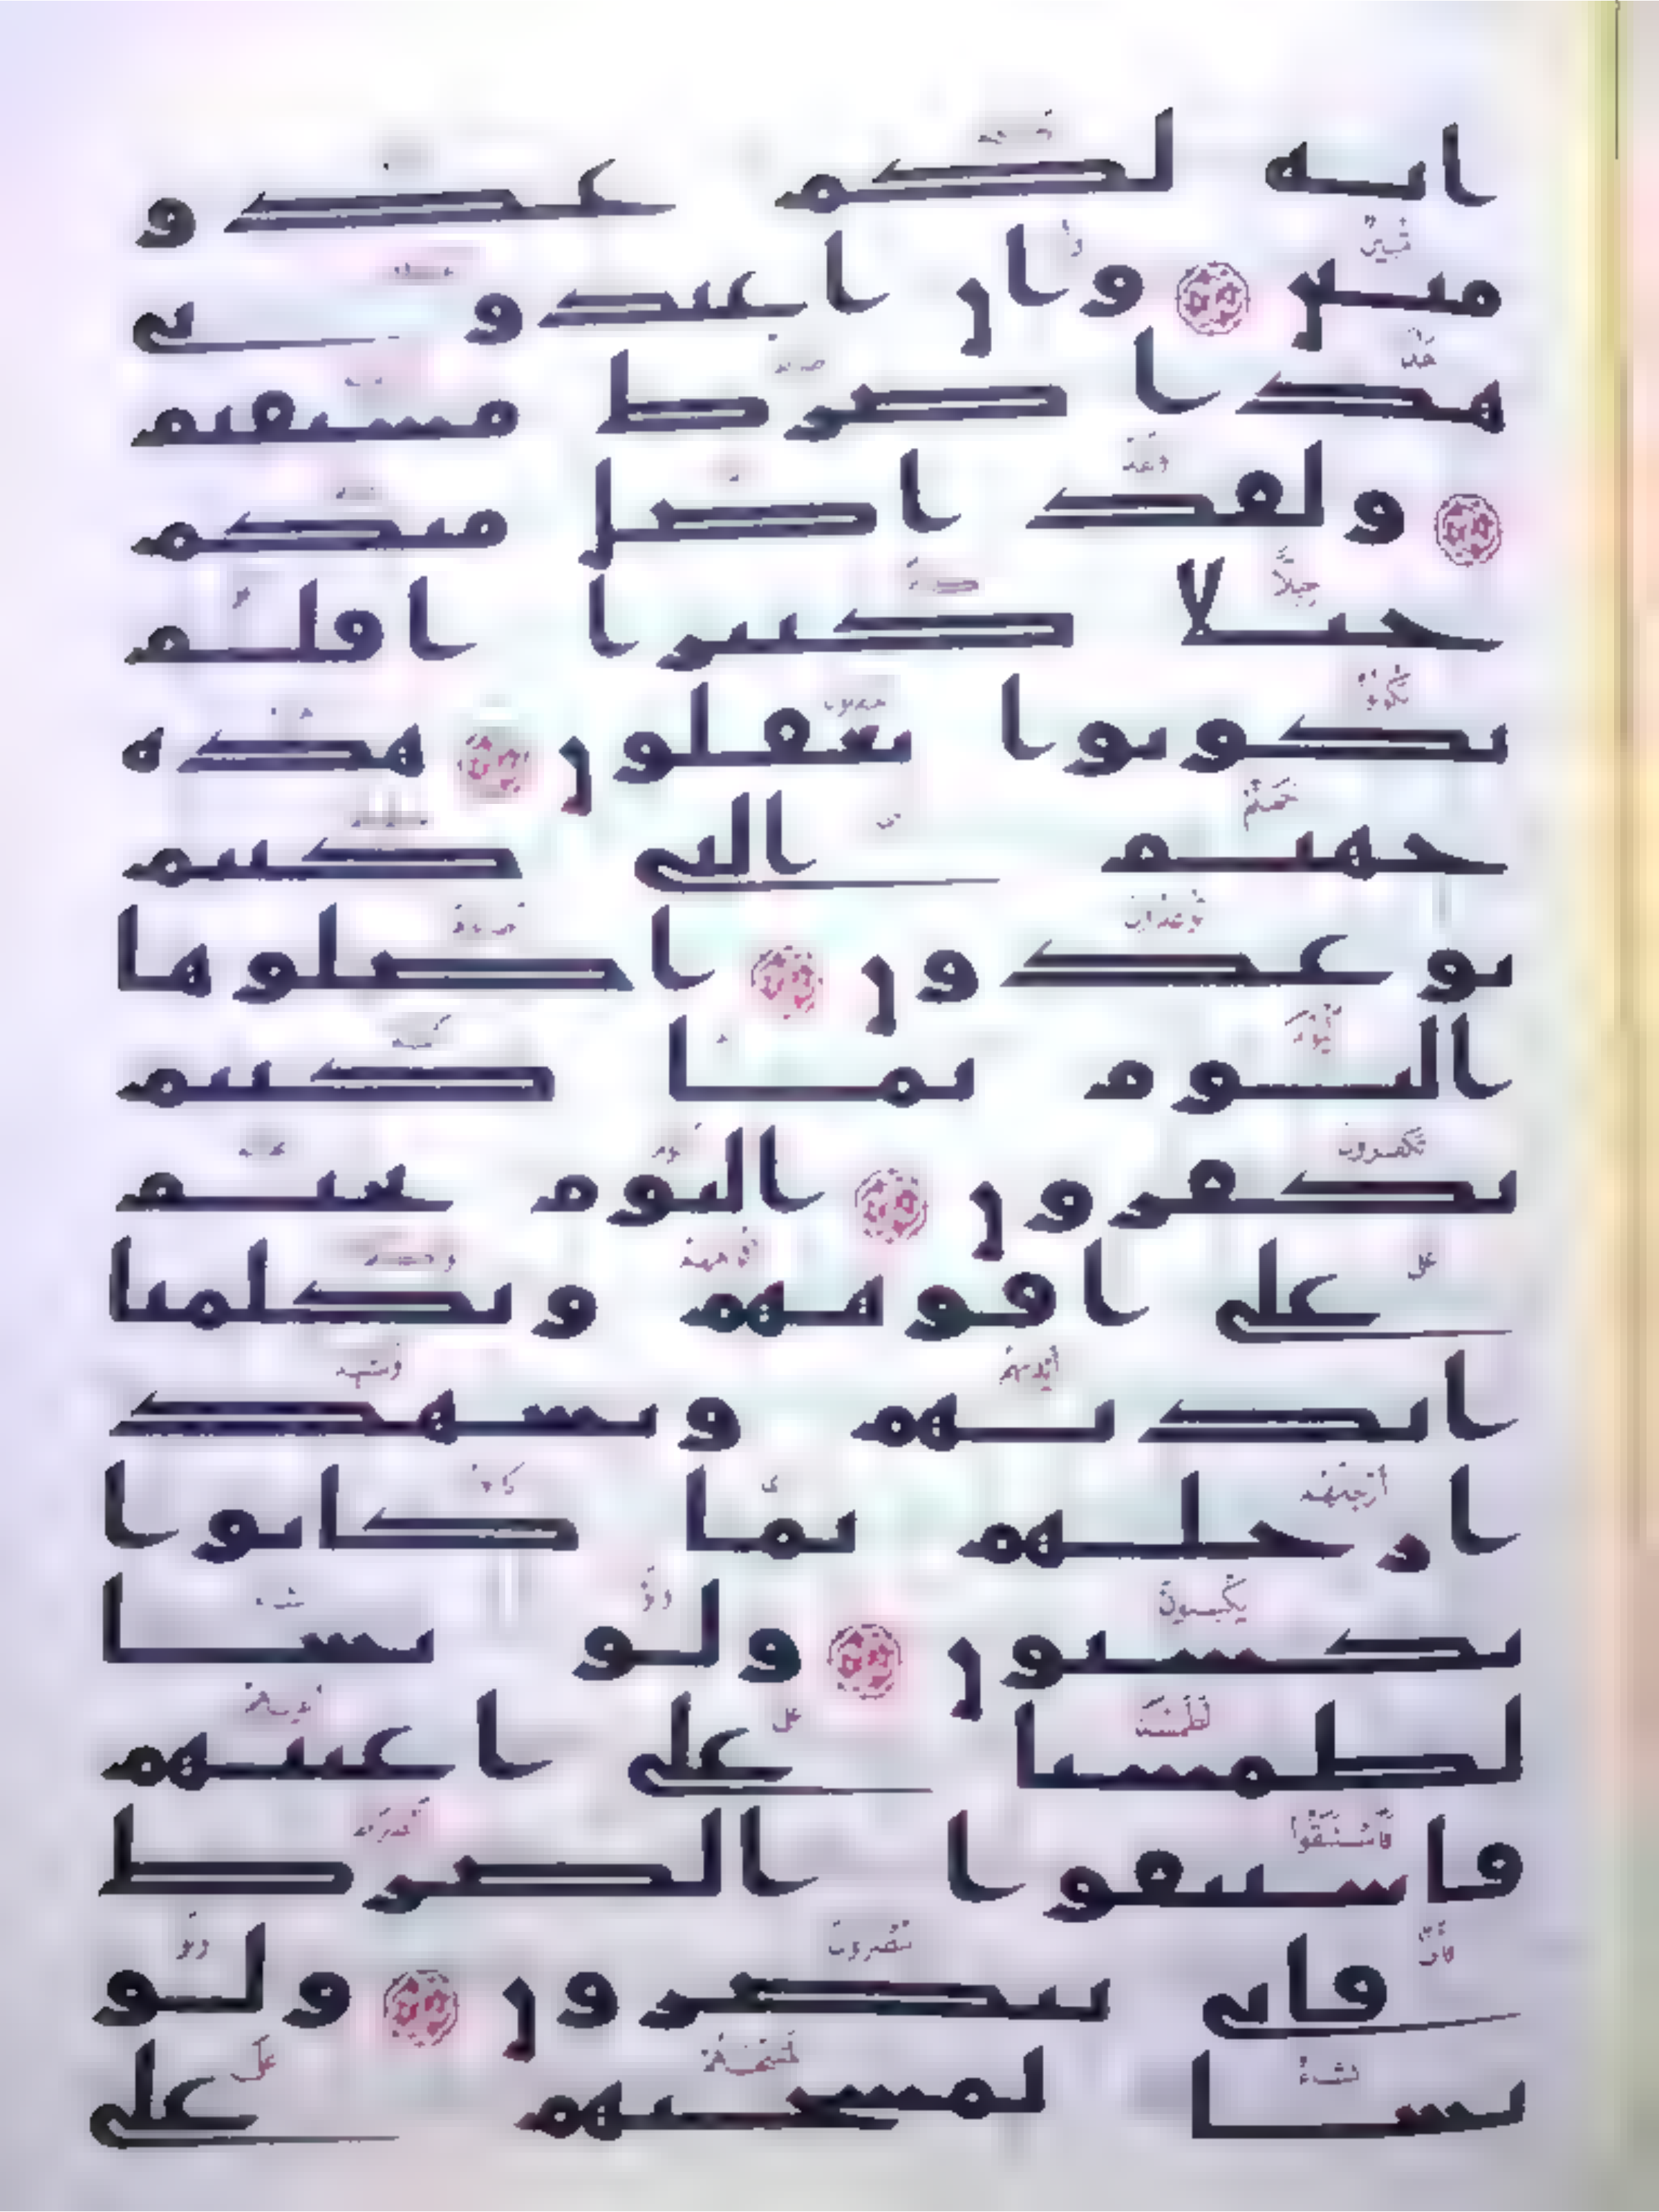 انه لكم عدو
مبين وان اعبدوني
هذا صرط مستقيم
ولقد اضل منكم
جبلا كثيرا افلم
تكونوا تعقلون هذه
جهنم التي كنتم
توعدون اصلوها
اليوم بما كنتم
تكفرون اليوم نختم
على افوههم وتكلمنا
ايديهم وتشهد
ارجلهم بما كانوا
يكسبون ولو نشا
لطمسنا على اعينهم
فاستبقوا الصرط
فانى يبصرون ولو
نشا لمسخنهم على